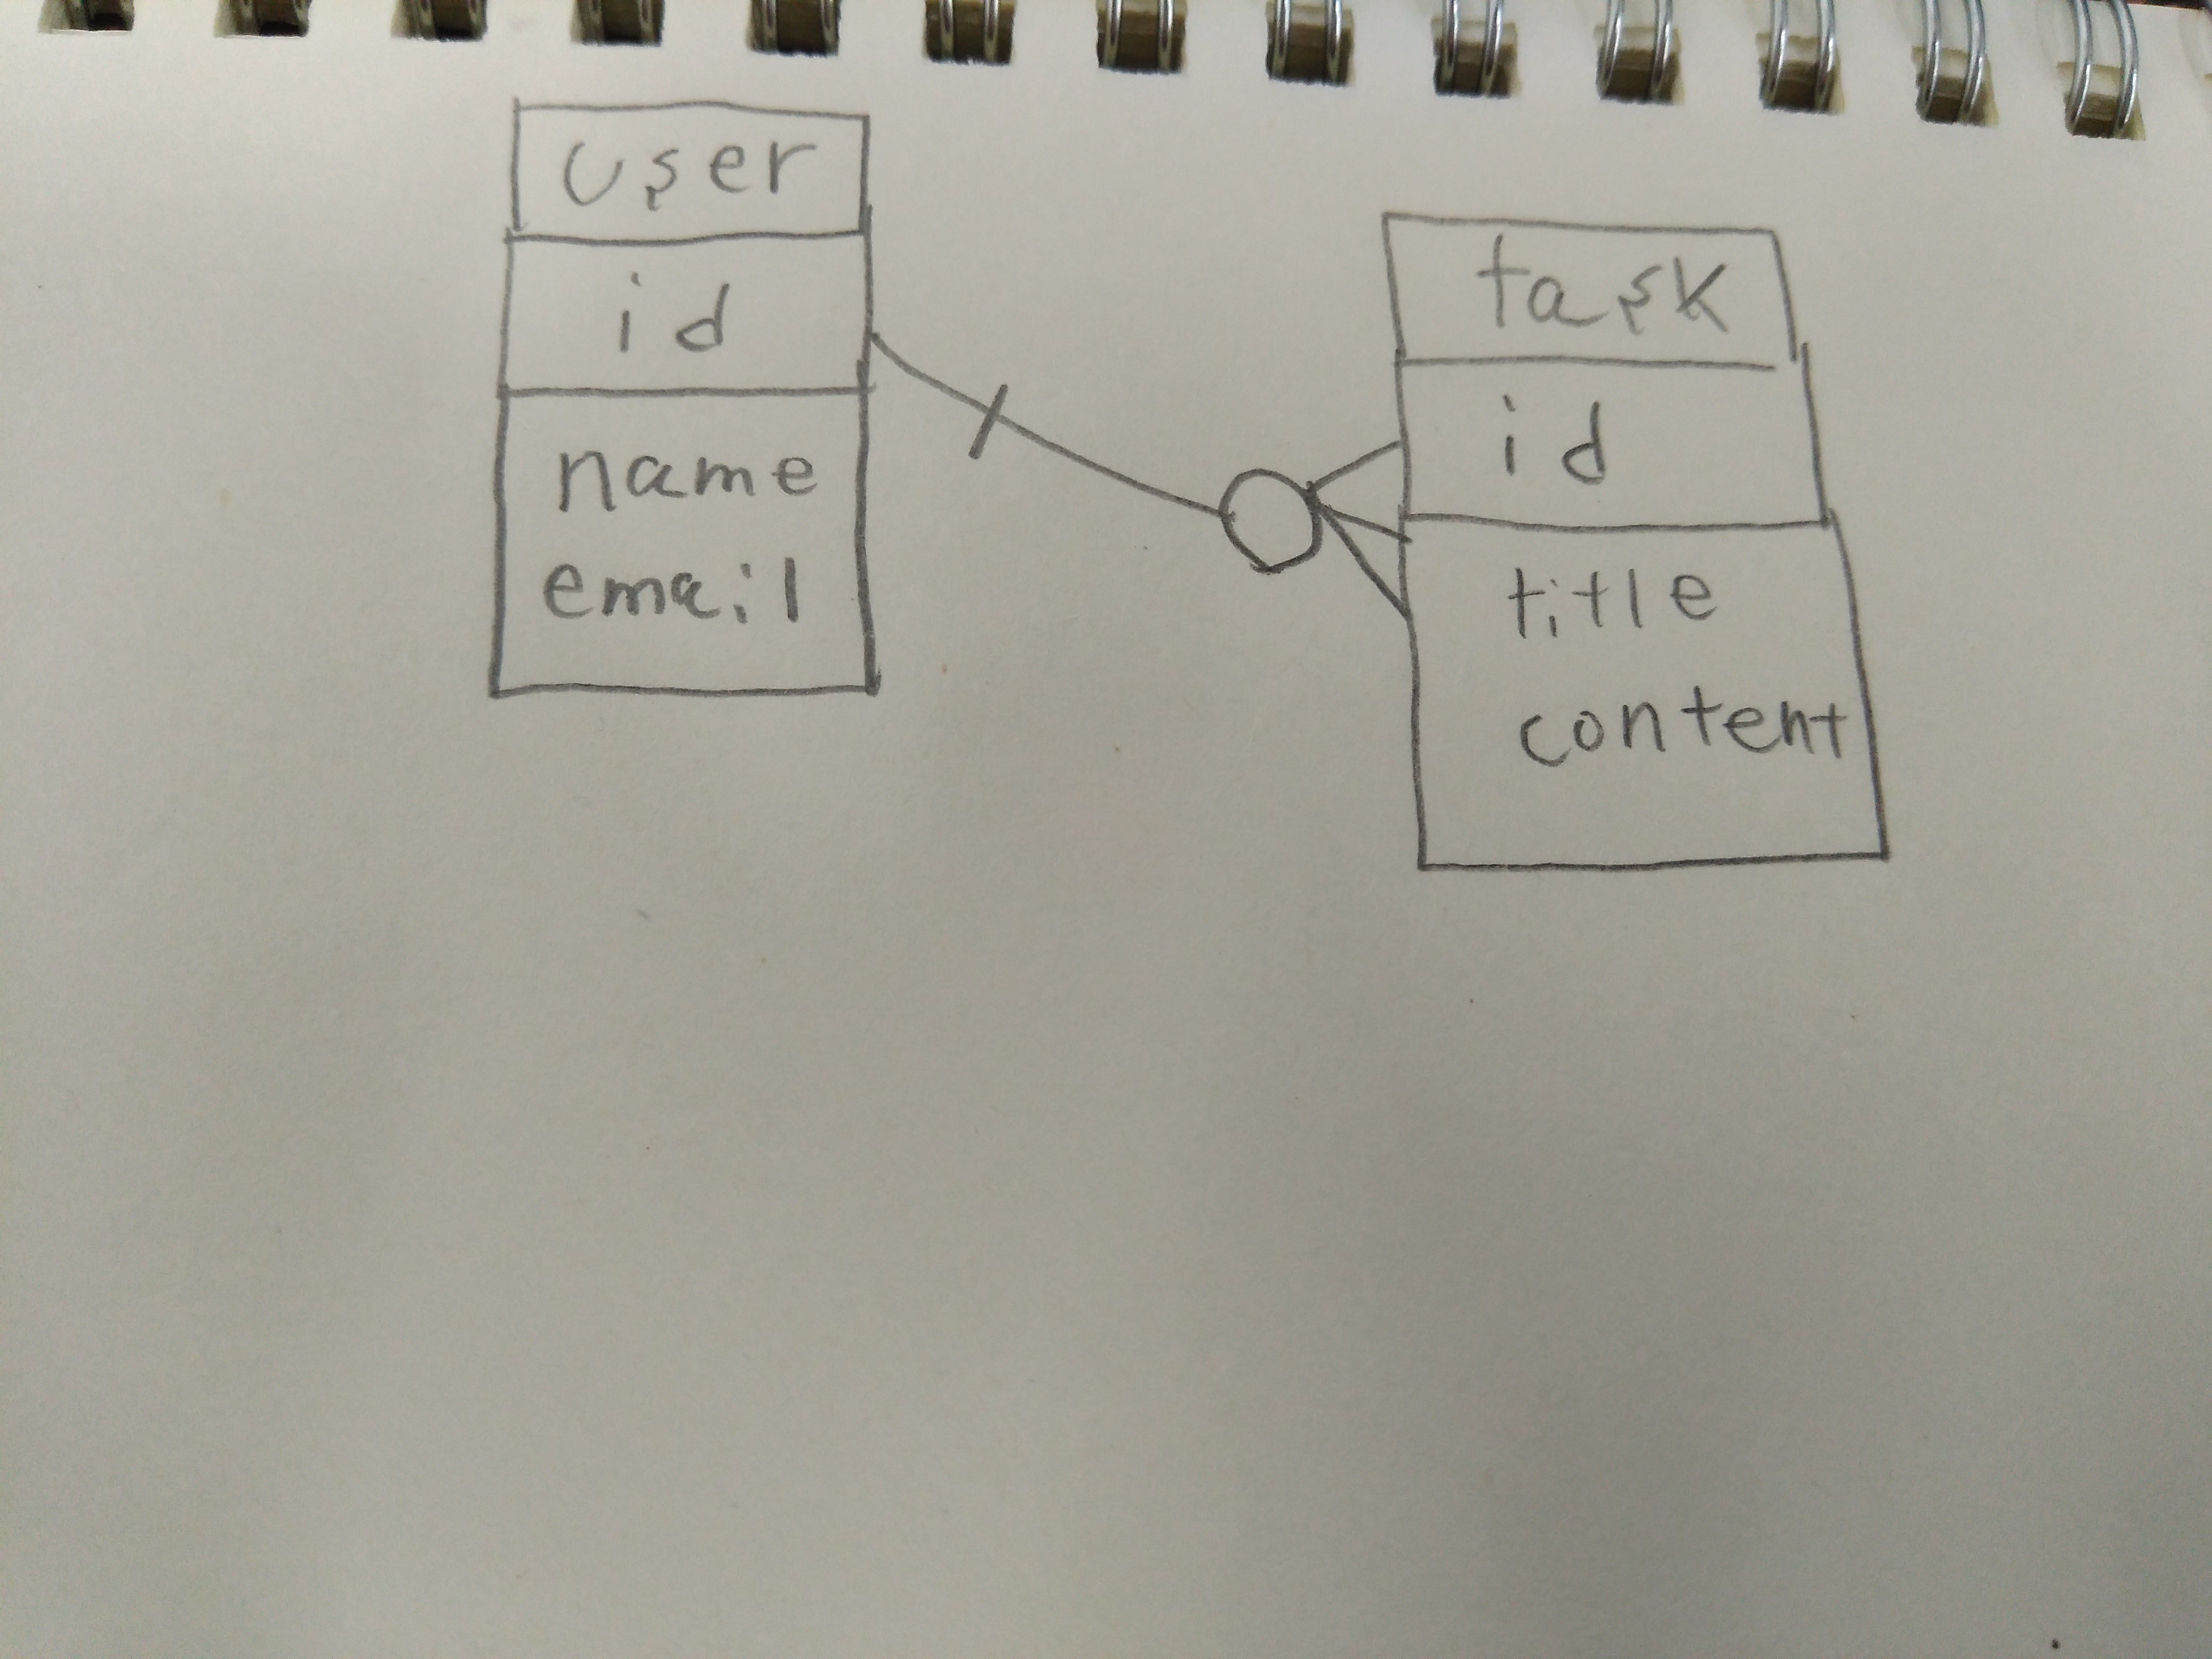 user
id
name
email
task
id
title
content